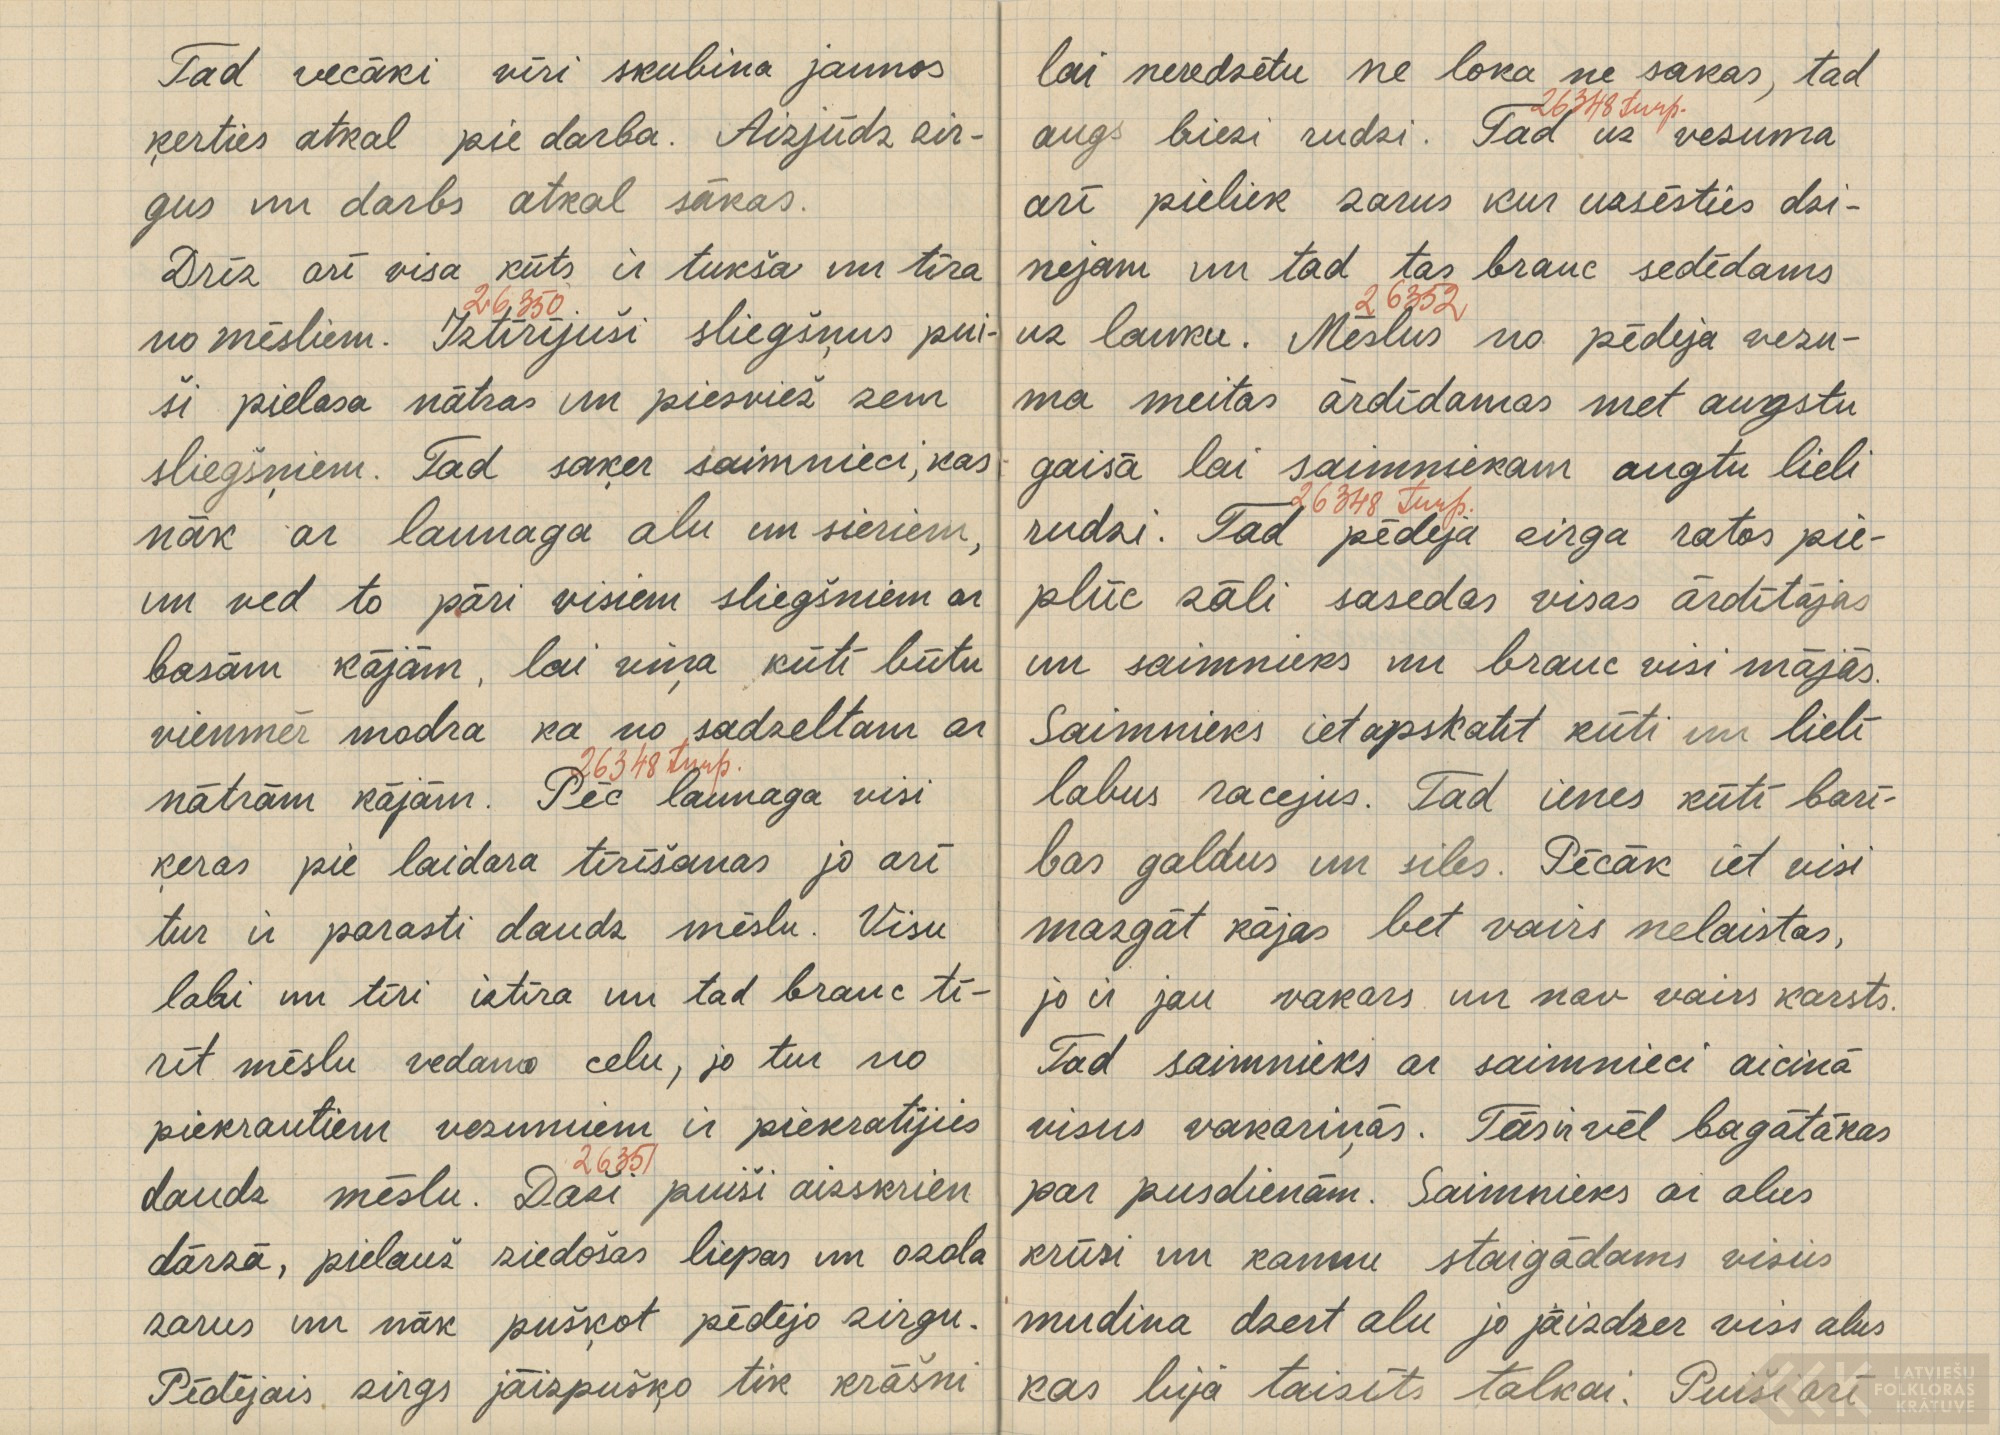 Tad vecāki vīri skubina jaunos
ķerties atkal pie darba. Aizjūdz zir-
gus un darbs atkal sākas.
Drīz arī visa kūts ir tukša un tīra
26350
no mēsliem. Iztīrījuši sliegšņus pui-
ši pielasa nātras un piesviež zem
sliegšņiem. Tad saķer saimnieci, kas
nāk ar launaga alu un sieriem,
un ved to pāri visiem sliegšniem ar
basām kājām, lai viņa kūtī būtu
vienmēr modra ka no sadzeltam ar
26348 turp.
nātrām kājām. Pēc launaga visi
ķeras pie laidara tīrīšanas jo arī
tur ir parasti daudz mēslu. Visu
labi un tīri iztīra un tad brauc tī-
rīt mēslu vedamo celu, jo tur no
piekrautiem vezumiem ir piekratījies
26351
daudz mēslu. Daži puiši aizskrien
dārzā, pielauž ziedošas liepas un ozola
zarus un nāk puškot pēdējo zirgu.
Pēdējais zirgs jāizpušķo tik krāšni
lai neredzētu ne loka ne sakas, tad
26348 turp.
augs biezi rudzi. Tad uz vezuma
arī pieliek zarus kur uzsēsties dzi-
nejam un tad tas brauc sedēdams
26352
uz lauku. Mēslus no pēdeja vezu-
ma meitas ārdīdamas met augstu
gaisā lai saimniekam augtu lieli
26348 turp.
rudzi. Tad pēdeja zirga ratos pie-
plūc zāli sasedas visas ārdītājas
un saimnieks un brauc visi mājās.
Saimnieks iet apskatīt kūti un lielī
labus racejus. Tad ienes kūtī barī-
bas galdus un siles. Pēcāk iet visi
mazgāt kājas bet vairs nelaistas,
jo ir jau vakars un nav vairs karsts.
Tad saimnieks ar saimnieci aicinā
visus vakariņās. Tās ir vēl bagātākas
par pusdienām. Saimnieks ar alus
krūzi un kannu staigādams visus
mudina dzert alu jo jāizdzer viss alus
kas bija taisīts talkai. Puiši arī
LATVIEŠU
FOLKLORAS
KRĀTUVE